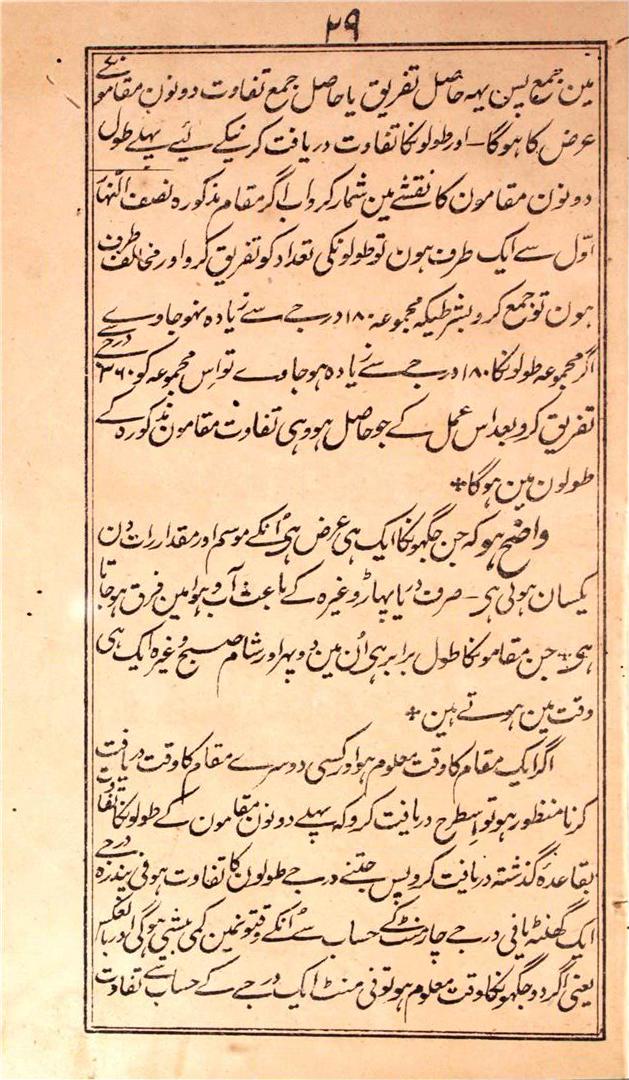 ۲۹
مین جمع پس یہہ حاصل تفریق یا حاصل جمع تفاوت دونون مقامونکے
عرض کا ہوگا - اور طولونکا تفاوت دریافت کرنیکے لئے پہلے طول
دونون مقامون کا نقشے مین شمار کرو اب اگر مقام مذکورہ نصف النہار
اوّل سے ایک طرف ہون تو طولونکی تعداد کو تفریق کرو اور مخالف طرف
ہون تو جمع کرو بشرطیکہ مجموعہ ۱۸۰ درجے سے زیادہ نہو جاوے
اگر مجموعہ طولونکا ۱۸۰ درجے سے زیادہ ہو جاوے تو اس مجموعہ کو ۳۶۰ درجے سے
تفریق کرو بعد اس عمل کے جو حاصل ہو وہی تفاوت مقامون مذکورہ کے
طولون مین ہوگا +
واضح ہو کہ جن جگہونکا ایک ہی عرض ہی اُنکے موسم اور مقدار رات دن
یکسان ہوتی ہی - صرف دریا پہاڑ وغیرہ کے باعث آب و ہوا مین فرق ہو جاتا
ہی + جن مقامونکا طول برابر ہی اُن مین دوپہر اور شام صبح وغیرہ ایک ہی
وقت مین ہوتے ہین +
اگر ایک مقام کا وقت معلوم ہو اور کسی دوسرے مقام کا وقت دریافت
کرنا منظور ہو تو اسطرح دریافت کرو کہ پہلے دونون مقامون کے طولونکا تفاوت
بقاعدہ گذشتہ دریافت کرو پس جتنے درجے طولون کا تفاوت ہو فی پندرہ درجے
ایک گھنٹہ یا فی درجے چار منٹ کے حساب سے اُنکے وقتونمین کمی بیشی ہوگی اور بالعکس
یعنی اگر دو جگہونکا وقت معلوم ہو تو فی منٹ ایک درجے کے حساب سے تفاوت